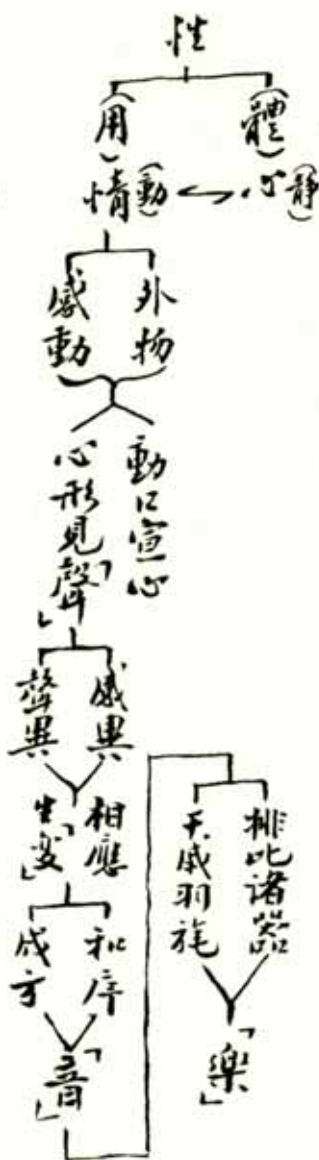 性
（體）
心（靜）
（用）
情（動）
外物
感動
動口宣心
心形見「聲」
感異
聲異
相應
生「變」
和序
成方
「音」
排比諸器
干戚羽旄
「樂」